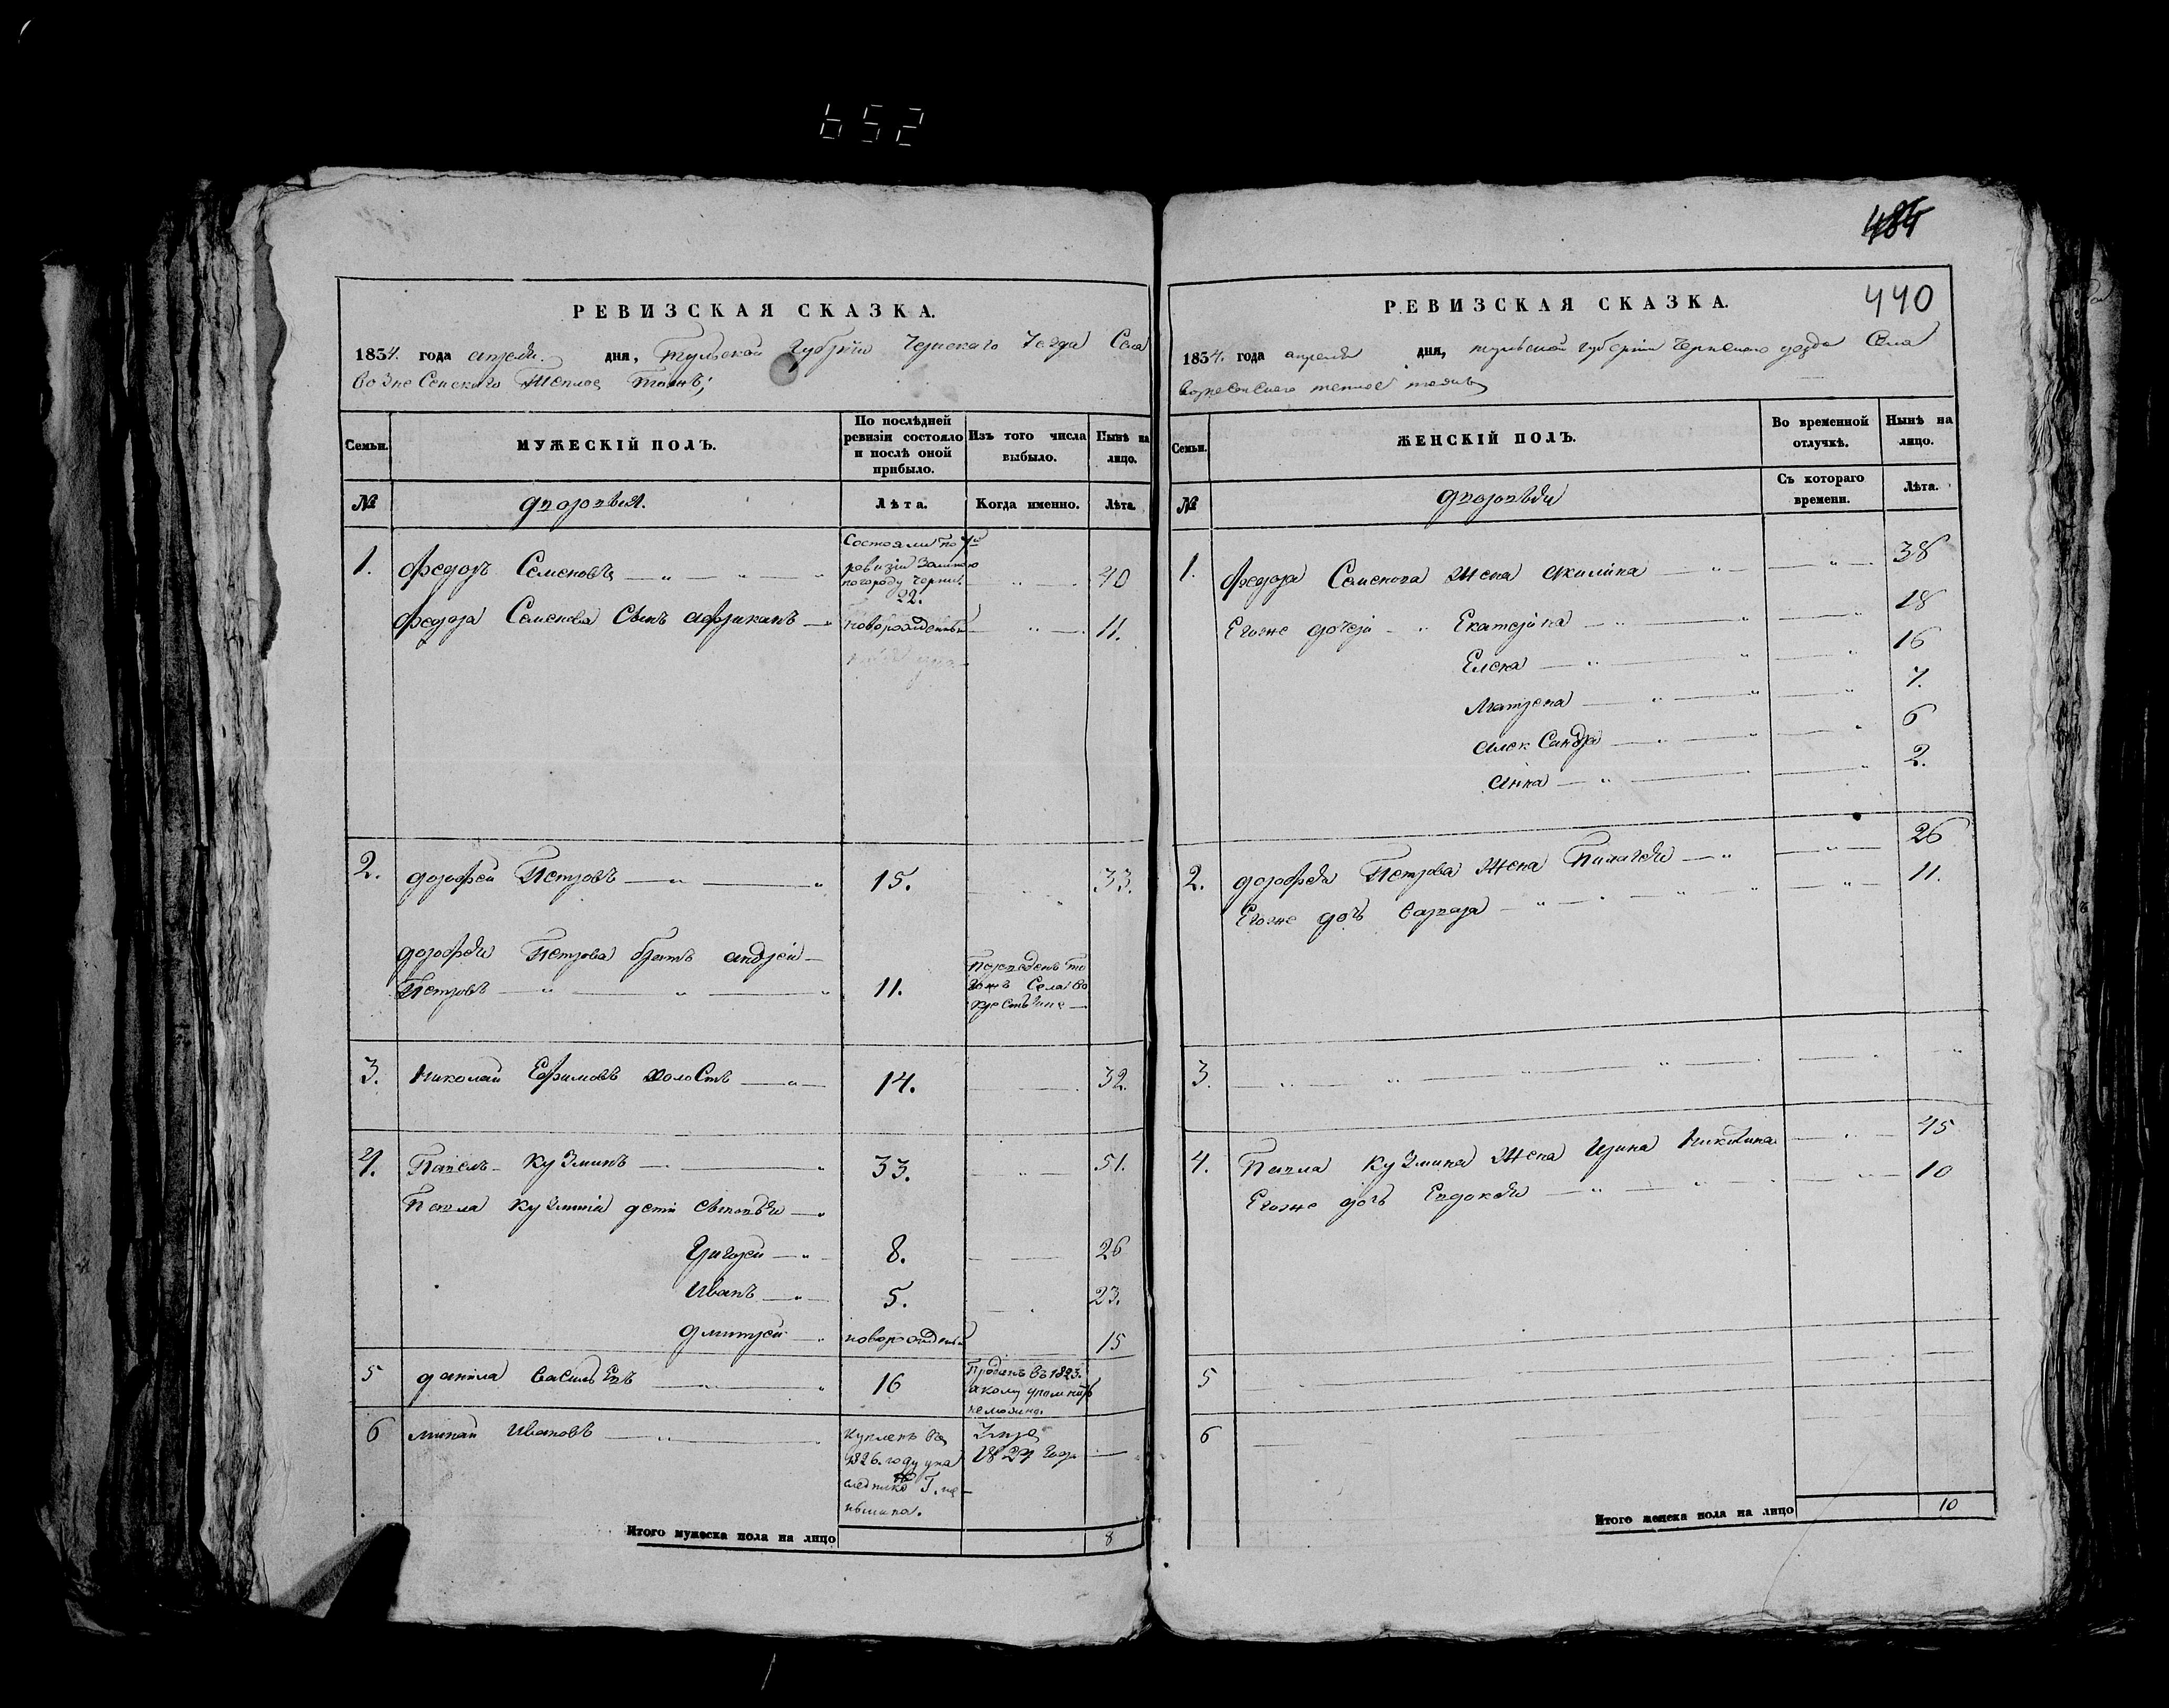 652
484
РЕВИЗСКАЯ СКАЗКА.
1834. года апреля. дня, Тульской губернiи Чернского Уезда Села
вознесенского Теплое тожъ;
Семьи. МУЖЕСКІЙ ПОЛЪ. По послѣдней ревизіи состояло и послѣ оной прибыло. Изъ того числа выбыло. Нынѣ на лицо.
№ дворовыя. Лѣта. Когда именно. Лѣта.
1. Федоръ Семеновъ Состоялъ по 7й ревизiи Заминою погороду Черни. 22. 40
Федора Семенова Сынъ африканъ новорожденный 11.
2. дорофей Петровъ 15. 33.
дорофея Петрова братъ андрей
Петровъ 11. Переведенъ того жъ Села во крестьяне
3. Николай Ефимовъ холостъ 14. 32.
4. Павелъ Кузминъ 33. 51.
Павла Кузмина дети сыновья
Григорей 8. 26
Иванъ 5. 23.
дмитрей новорожденый 15
5 данiла васильевъ 16 Проданъ въ 1823. акому упомнить неможно.
6 минай Ивановъ Купленъ въ 1826. году 1827 года
Итого мужеска пола на лицо 8
РЕВИЗСКАЯ СКАЗКА. 440
1834. года апреля дня, тульской губернiи Чернского уезда Села
вознесенского теплое тожъ
Семьи. ЖЕНСКІЙ ПОЛЪ. Во временной отлучкѣ. Нынѣ на лицо.
№ дворовыя Съ котораго времени. Лѣта.
1. Федора Семенова Жена акилина 38
Егоже дочери Екатерiна 18
Елена 16
Матрена 7.
алекСандра 6
анна 2.
2. дорофея Петрова Жена Пилагея 26
Егоже дочь варвара 11.
3.
4. Павла Кузмина Жена Ирина Никитина 45
Егоже дочь Евдокея 10
5
6
Итого женска пола на лицо 10